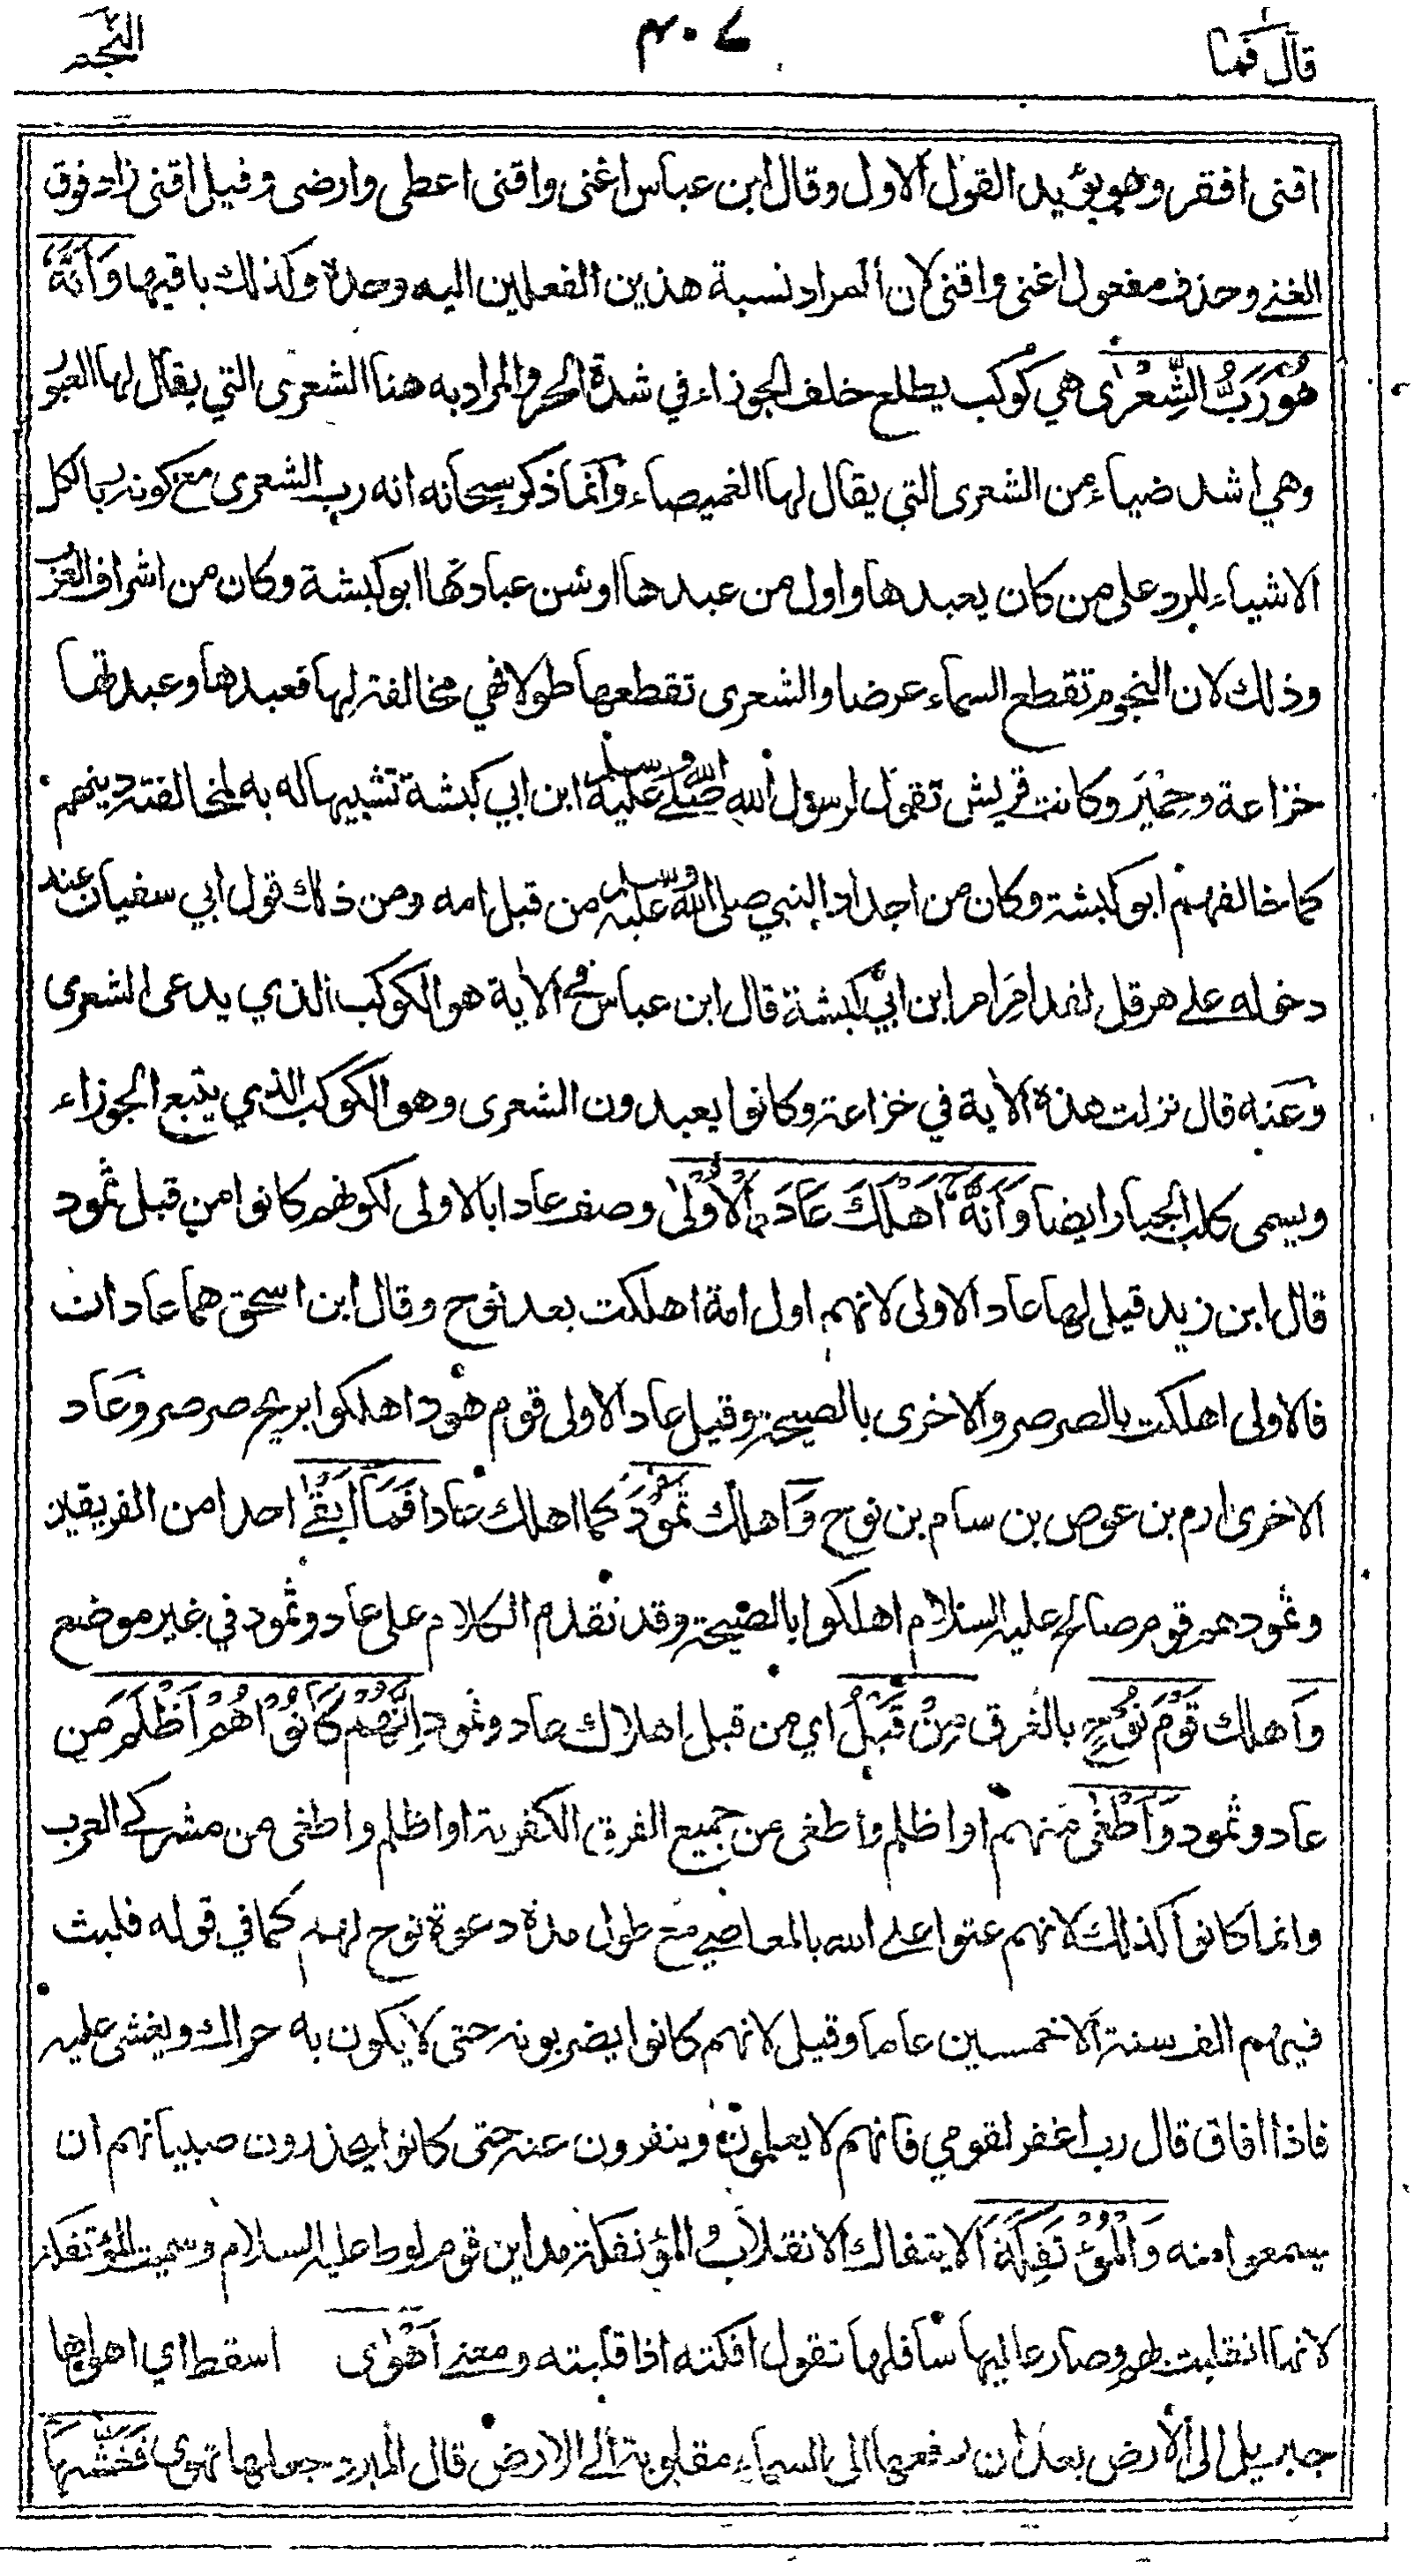 قال فما
٤٠٧
النجم
اقنى افقر وهو يؤيد القول الاول وقال ابن عباس اغنى واقنى اعطى وارضى وقيل اقنى زاد فوق
الغنى وحذف مفعول اغنى واقنى لان المراد نسبة هذين الفعلين اليه وحده وكذلك باقيها وَاَنَّهٗ
هُوَ رَبُّ الشِّعْرٰى هي كوكب يطلع خلف الجوزاء في شدة الحر والمراد به هنا الشعرى التي يقال لها العبور
وهي اشد ضياء من الشعرى التي يقال لها الغميصاء وانما ذكر سبحانه انه رب الشعرى مع كونه ربا لكل
الاشياء للرد على من كان يعبدها واول من عبدها وسن عبادتها ابو كبشة وكان من اشراف العرب
وذلك لان النجوم تقطع السماء عرضا والشعرى تقطعها طولا فهي مخالفة لها فعبدها وعبدتها
خزاعة وحِمْيَر وكانت قريش تقول لرسول الله صلى الله عليه وسلم ابن ابي كبشة تشبيها له به لمخالفته دينهم
كما خالفهم ابو كبشة وكان من اجداد النبي صلى الله عليه وسلم من قبل امه ومن ذلك قول ابي سفيان عند
دخوله على هرقل لقد امِرَ امر ابن ابي كبشة قال ابن عباس في الآية هو الكوكب الذي يدعى الشعرى
وعنه قال نزلت هذه الآية في خزاعة وكانوا يعبدون الشعرى وهو الكوكب الذي يتبع الجوزاء
ويسمى كلب الجبار ايضا وَاَنَّهٗ اَهْلَكَ عَادَا الْاُوْلٰى وصف عادا بالاولى لكونهم كانوا من قبل ثمود
قال ابن زيد قيل لها عاد الاولى لانهم اول امة اهلكت بعد نوح وقال ابن اسحق هما عادان
فالاولى اهلكت بالصرصر والاخرى بالصيحة وقيل عاد الاولى قوم هود اهلكوا بريح صرصر وعاد
الاخرى ارم بن عوص بن سام بن نوح وَاهلك ثَمُوْدَ كما اهلك عادا فَمَا اَبْقٰى احدا من الفريقين
وثمود هم قوم صالح عليه السلام اهلكوا بالصيحة وقد تقدم الكلام على عاد وثمود في غير موضع
وَاهلك قَوْمَ نُوْحٍ بالغرق مِنْ قَبْلُ اي من قبل اهلاك عاد وثمود اِنَّهُمْ كَانُوْا هُمْ اَظْلَمَ من
عاد وثمود وَاَطْغٰى منهم او اظلم واطغى من جميع الفرق الكفرية او اظلم واطغى من مشركي العرب
وانما كانوا كذلك لانهم عتوا على الله بالمعاصي مع طول مدة دعوة نوح لهم كما في قوله فلبث
فيهم الف سنة الا خمسين عاما وقيل لانهم كانوا يضربونه حتى لا يكون به حراك ويغشى عليه
فاذا افاق قال رب اغفر لقومي فانهم لا يعلمون وينفرون عنه حتى كانوا يحذرون صبيانهم ان
يسمعوا منه وَالْمُؤْتَفِكَةَ الايتفاك الانقلاب والمؤتفكة مداين قوم لوط عليه السلام وسميت المؤتفكة
لانها انقلبت بهم وصار عاليها سافلها تقول افكته اذا قلبته ومعنى اَهْوٰى اسقط اي اهواها
جبريل الى الارض بعد ان رفعها الى السماء مقلوبة الى الارض قال المبرد جعلها تهوى فَغَشّٰىهَا